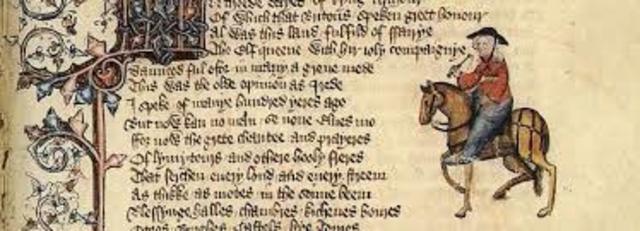 Of which that Britons speken greet honour
Al was this land fulfild of fairye
The Elf queene with hir ioly compaignye
Daunced ful ofte in many a grene mede
This was the olde opinion as I rede
I speke of manye hundred yeres ago
But now kan no man se none Elues mo
ffor now the grete charitee and prayeres
Of lymytours and othere hooly freres
That serchen euery lond and euery streem
As thikke as motes in the sonne beem
Blessynge halles chambres kichenes boures